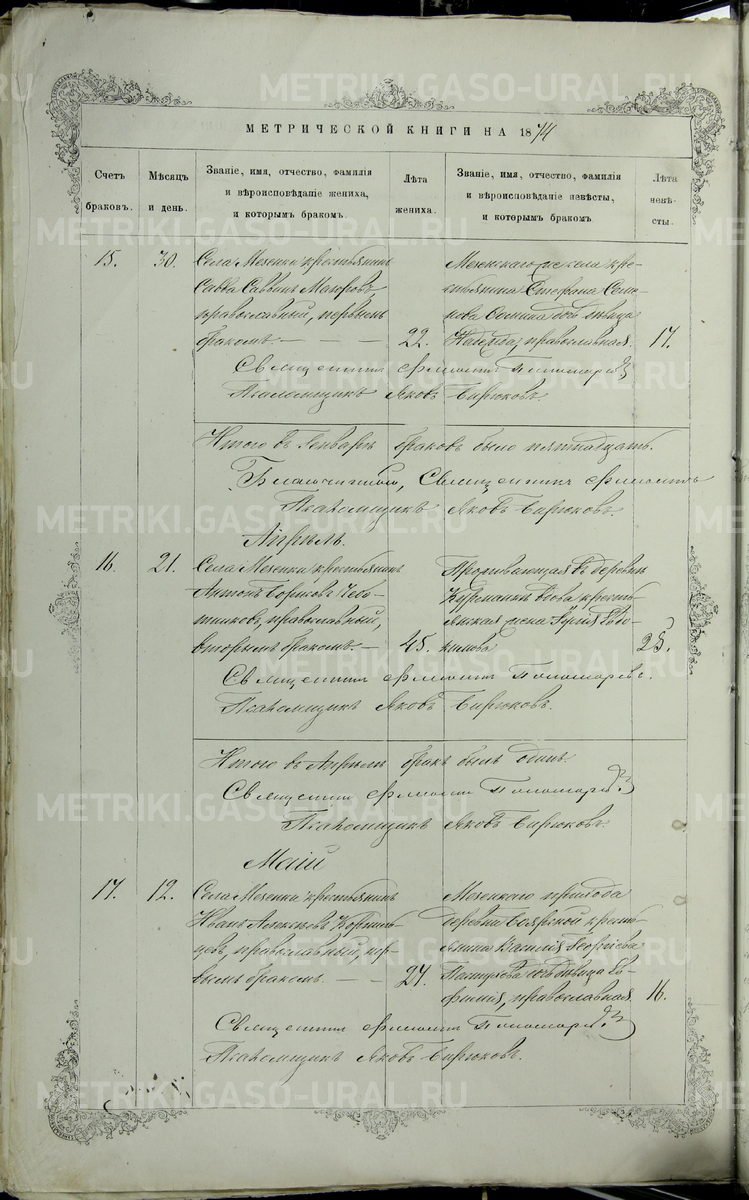 МЕТРИЧЕСКОЙ КНИГИ НА 1874
Счетъ браковъ.
Мѣсяцъ и день.
Званіе, имя, отчество, фамилія
и вѣроисповѣданіе жениха,
и которымъ бракомъ.
Лѣта жениха.
Званіе, имя, отчество, фамилія
и вѣроисповѣданіе невѣсты,
и которымъ бракомъ
Лѣта невѣ-
сты.
15. 30. Села Мезенки крестьянинъ
Савва Саввинъ
православный, первымъ
бракомъ. 22.
Мезенскаго селенія кре-
стьянина Стефана
дочь дѣвица
Надежда, православная. 17.
Священникъ Пономаревъ
Псаломщикъ Яковъ Бирюковъ.
Итого въ Генварѣ браковъ было пятнадцать.
Благочинный, Священникъ
Псаломщикъ Яковъ Бирюковъ.
Апрѣль.
16. 21. Села Мезенки крестьянинъ
Антонъ Чебо-
тниковъ, православный,
вторымъ бракомъ. 45.
Проживающая въ деревнѣ
Курманкѣ вдова кресть-
янская жена Евдо-
кимова 25.
Священникъ Пономаревъ.
Псаломщикъ Яковъ Бирюковъ.
Итого въ Апрѣлѣ бракъ былъ одинъ.
Священникъ Пономаревъ
Псаломщикъ Яковъ Бирюковъ.
Маій
17. 12. Села Мезенки крестьянинъ
Иванъ Алексѣевъ
православный, пер-
вымъ бракомъ. 24.
Мезенскаго прихода
деревни Боярской кресть-
янина Василія Георгіева
дочь дѣвица Ев-
фимія, православная. 16.
Священникъ Пономаревъ
Псаломщикъ Яковъ Бирюковъ.
METRIKI.GASO-URAL.RU